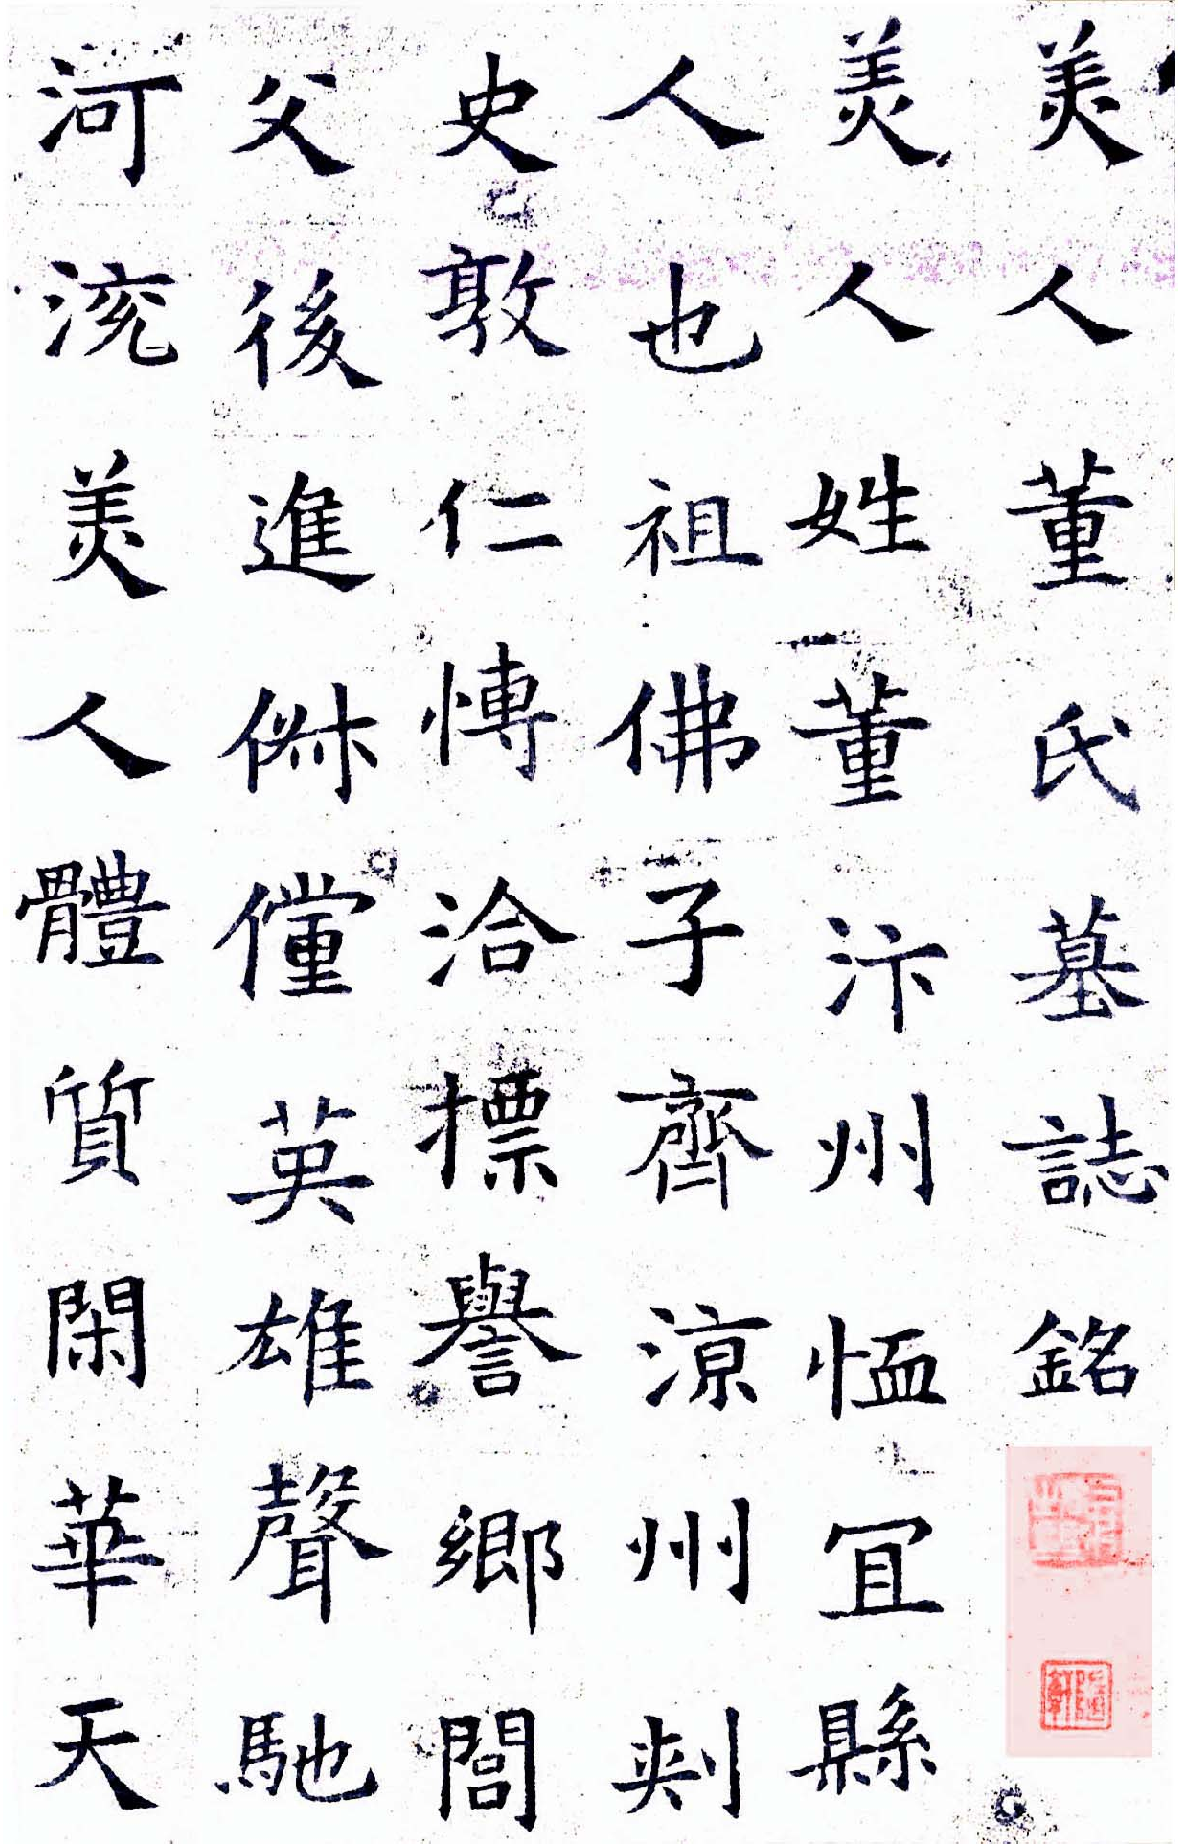 美人董氏墓誌銘
美人姓董汴州恤宜縣
人也祖佛子齊涼州刺
史敦仁慱洽摽譽鄉閭
父後進俶儻英雄聲馳
河沇美人體質閑華天